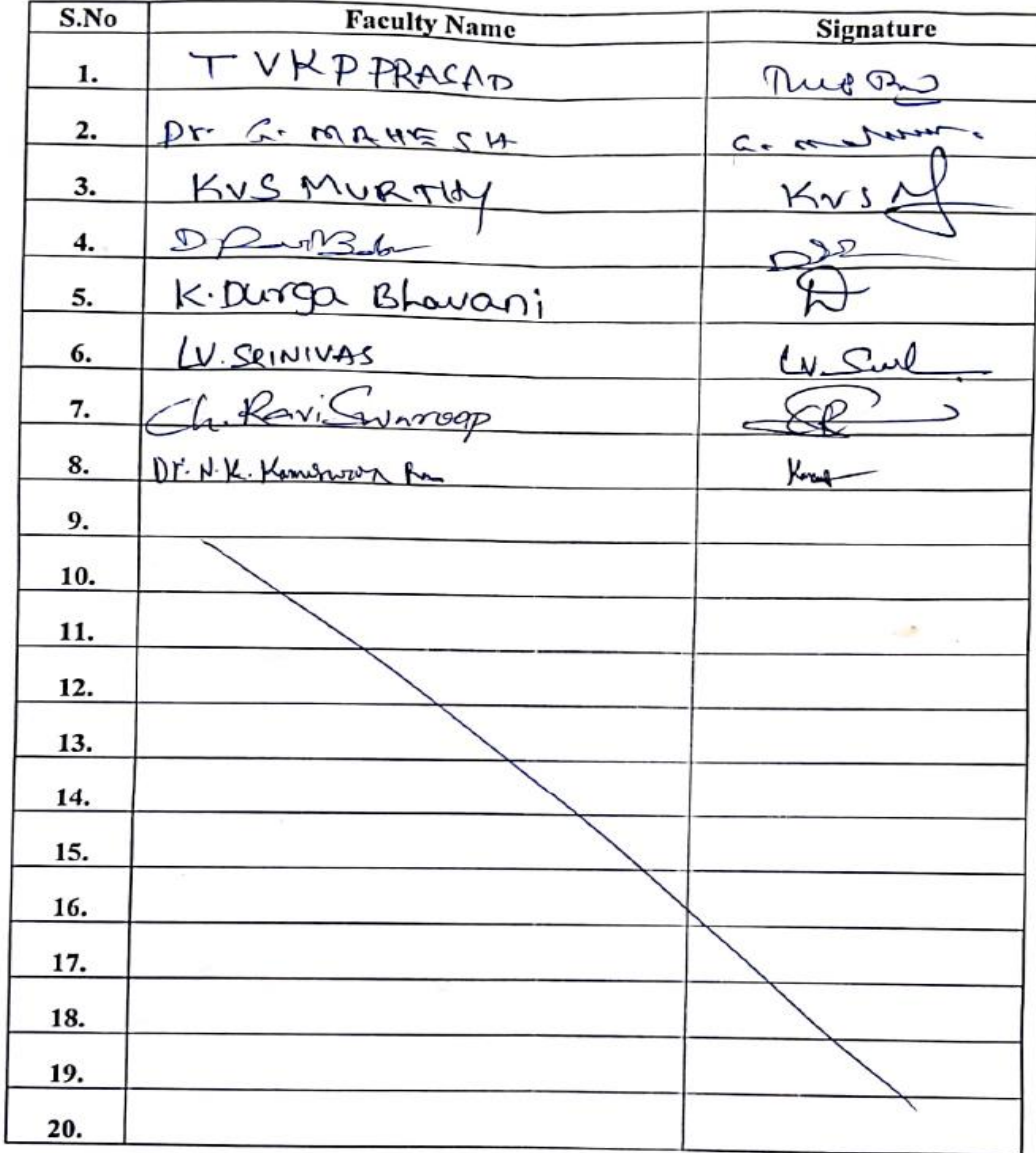 S.No Faculty Name Signature
1. T V K P PRASAD
2. Dr. G. MAHESH G.
3. KVS MURTHY KVS
4. D Babu
5. K. Durga Bhavani
6. LV. SRINIVAS LV.
7. Ch. Ravi Swaroop
8. Dr. N. K. Kameswara Rao
9.
10.
11.
12.
13.
14.
15.
16.
17.
18.
19.
20.